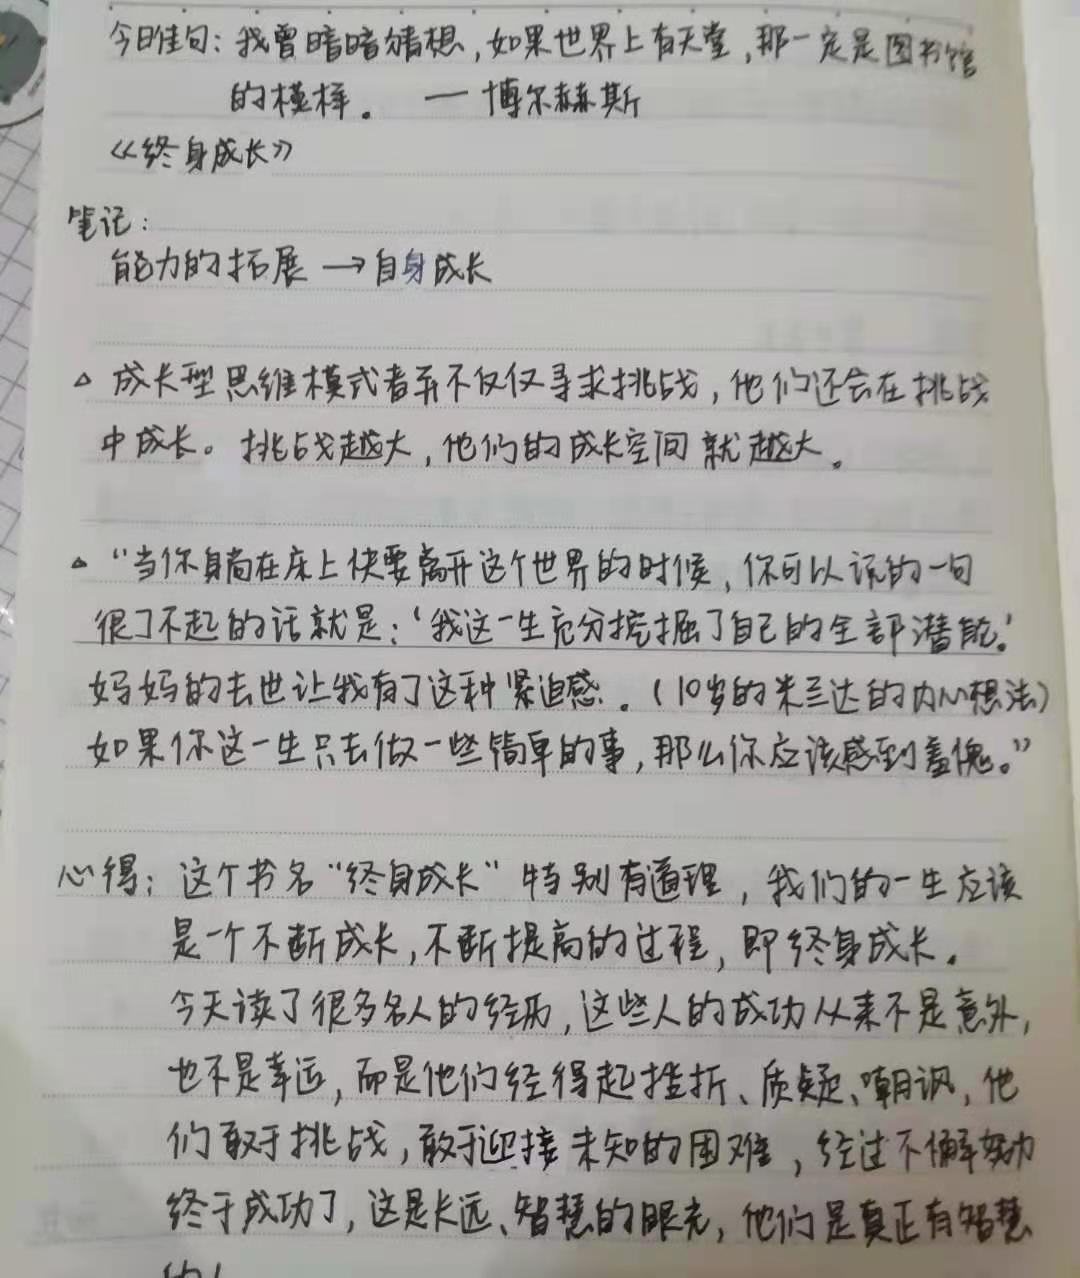 今日佳句：我曾暗暗猜想，如果世界上有天堂，那一定是图书馆
的模样。 —博尔赫斯
《终身成长》
笔记：
能力的拓展→自身成长
△ 成长型思维模式者并不仅仅寻求挑战，他们还会在挑战
中成长。挑战越大，他们的成长空间就越大。
△ “当你躺在床上快要离开这个世界的时候，你可以说的一句
很了不起的话就是：‘我这一生充分挖掘了自己的全部潜能。’
妈妈的去世让我有了这种紧迫感。（10岁的米兰达的内心想法）
如果你这一生只去做一些简单的事，那么你应该感到羞愧。”
心得：这个书名“终身成长”特别有道理，我们的一生应该
是一个不断成长，不断提高的过程，即终身成长。
今天读了很多名人的经历，这些人的成功从来不是意外，
也不是幸运，而是他们经得起挫折、质疑、嘲讽，他
们敢于挑战，敢于迎接未知的困难，经过不懈努力
终于成功了，这是长远、智慧的眼光，他们是真正有智慧